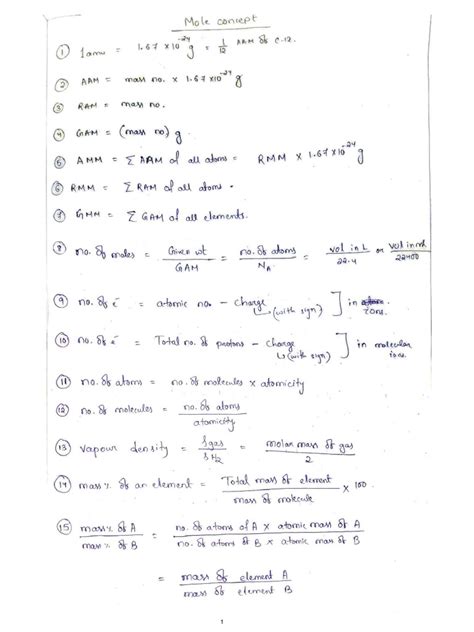 Mole concept
① 1amu = 1.67 × 10⁻²⁴ g = 1/12 AAM of C-12.
② AAM = mass no. × 1.67 × 10⁻²⁴ g
③ RAM = mass no.
④ GAM = (mass no) g
⑤ AMM = Σ AAM of all atoms = RMM × 1.67 × 10⁻²⁴ g
⑥ RMM = Σ RAM of all atoms.
⑦ GMM = Σ GAM of all elements.
⑧ no. of moles = Given wt / GAM = no. of atoms / N_A = vol in L / 22.4 or vol in ml / 22400
⑨ no. of e⁻ = atomic no. - charge (with sign) ] in ions.
⑩ no. of e⁻ = Total no. of protons - charge (with sign) ] in molecular ions.
⑪ no. of atoms = no. of molecules × atomicity
⑫ no. of molecules = no. of atoms / atomicity
⑬ vapour density = ρgas / ρH₂ = molar mass of gas / 2
⑭ mass % of an element = Total mass of element / mass of molecule × 100.
⑮ mass % of A / mass % of B = no. of atoms of A × atomic mass of A / no. of atoms of B × atomic mass of B
= mass of element A / mass of element B
1